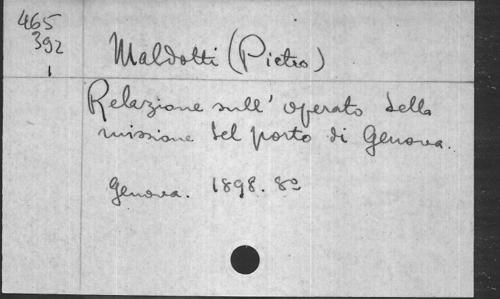 465
392
1
Maldotti (Pietro)
Relazione sull' operato della
missione del porto di Genova.
Genova. 1898. 8°